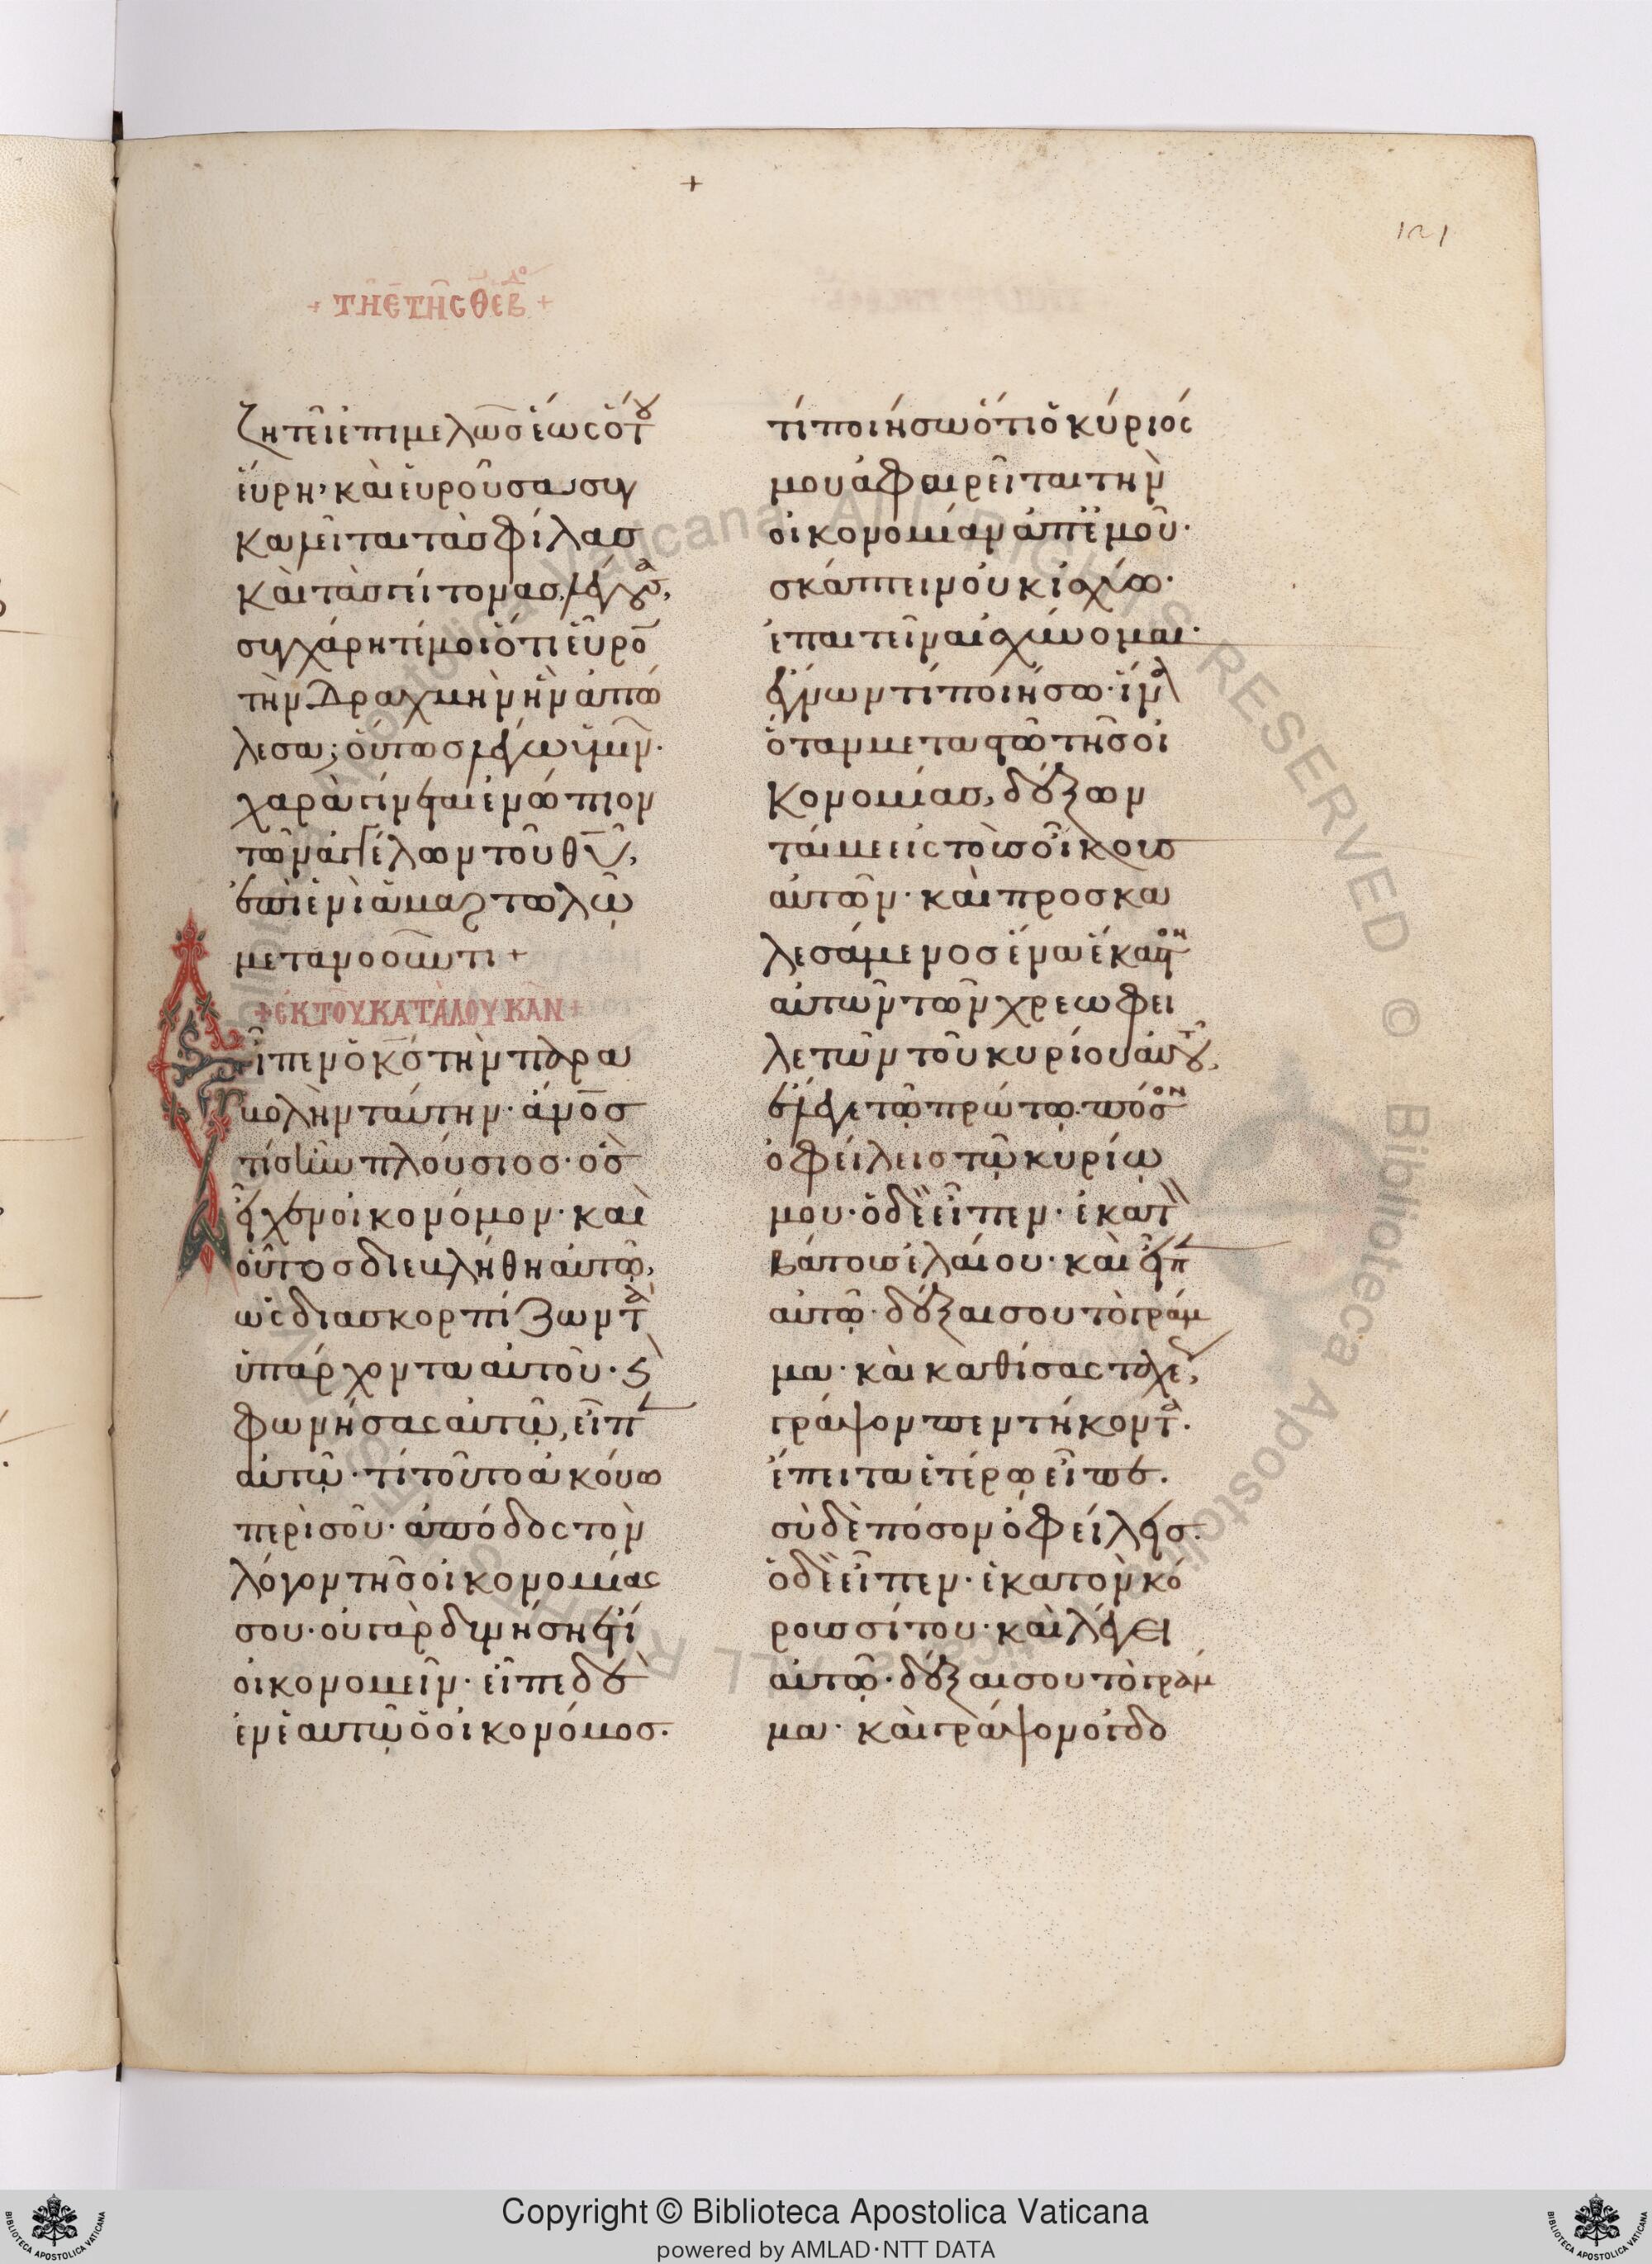 +
121
+ τῆ ε̄ τῆς θ ἑβδο +
ζητεῖ ἐπιμελῶσ ἕως ὅτου
εὕρη, καὶ εὑροῦσα συγ
καλεῖται τὰσ φίλασ
καὶ τὰσ γείτονασ, λέγουσα,
συγχάρητέ μοι ὅτι εὗρον
τὴν δραχμὴν ἣν ἀπώ
λεσα; οὕτωσ λέγω ὑμῖν·
χαρὰ γίνεται ἐνώπιον
τῶν ἀγγέλων τοῦ θ̅υ̅,
ἐπὶ ἑνὶ ἁμαρτωλῶ
μετανοοῦντι +
+ ἐκ τοῦ κατὰ λουκᾶν +
Εἶπεν ὁ κ̅ς̅ τὴν παρα
βολὴν ταύτην· ἄν̅ο̅σ
τίσ ἦν πλούσιοσ· ὃσ
εἶχεν οἰκονόμον· καὶ
οὗτοσ διεβλήθη αὐτῶ,
ὡς διασκορπίζων τὰ
ὑπάρχοντα αὐτοῦ· καὶ
φωνήσας αὐτῶ, εἶπεν
αὐτῶ· τί τοῦτο ἀκούω
περὶ σοῦ· ἀπόδος τὸν
λόγον τῆσ οἰκονομίας
σου· οὐ γὰρ δυνήση ἔτι
οἰκονομεῖν· εἶπε δὲ
ἐν ἑαυτῶ ὁ οἰκονόμοσ·
τί ποιήσω ὅτι ὁ κύριός
μου ἀφαιρεῖται τὴν
οἰκονομίαν ἀπ' ἐμοῦ·
σκάπτειν οὐκ ἰσχύω·
ἐπαιτεῖν αἰσχύνομαι·
ἔγνων τί ποιήσω· ἵνα
ὅταν μετασταθῶ τῆσ οἰ
κονομίασ, δέξων
ταί με εἰς τοὺσ οἴκουσ
αὐτῶν· καὶ προσκα
λεσάμενοσ ἕνα ἕκαστον
αὐτῶν τῶν χρεωφει
λετῶν τοῦ κυρίου αὐτοῦ,
ἔλεγε τῶ πρώτω· πόσον
ὀφείλεισ τῶ κυρίω
μου· ὁ δὲ εἶπεν· ἑκατὸν
βάτουσ ἐλαίου· καὶ εἶπεν
αὐτῶ· δέξαι σου τὸ γράμ
μα· καὶ καθίσας ταχέως,
γράψον πεντήκοντα·
ἔπειτα ἑτέρω εἶπε·
σὺ δὲ πόσον ὀφείλεισ·
ὁ δὲ εἶπεν· ἑκατὸν κό
ρουσ σίτου· καὶ λέγει
αὐτῶ· δέξαι σου τὸ γράμ
μα· καὶ γράψον ὀγδο
Copyright © Biblioteca Apostolica Vaticana
powered by AMLAD·NTT DATA